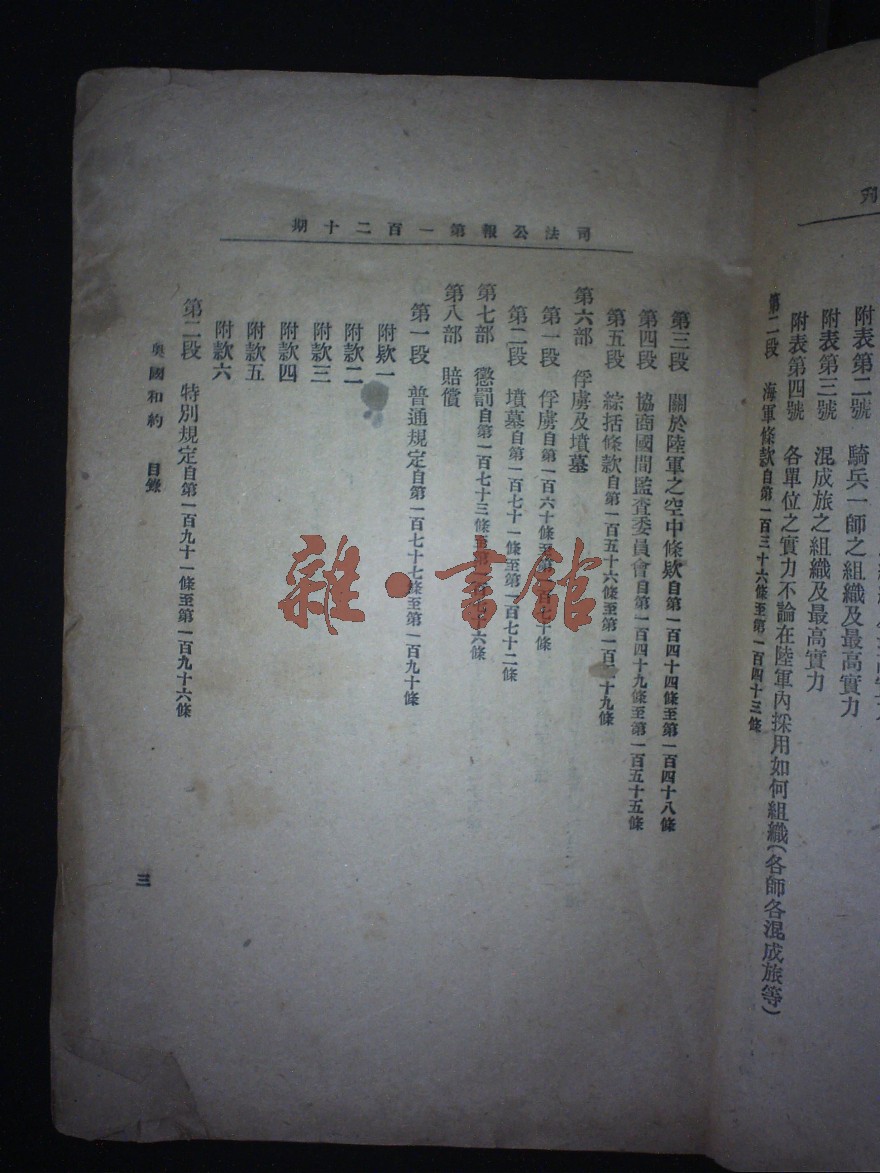 刋
附表第二號　騎兵一師之組織及最高實力
附表第三號　混成旅之組織及最高實力
附表第四號　各單位之實力不論在陸軍內採用如何組織(各師各混成旅等)
第二段　海軍條款自第一百三十六條至第一百四十三條
司法公報第一百二十期
第三段　關於陸軍之空中條欵自第一百四十四條至第一百四十八條
第四段　協商國間監査委員會自第一百四十九條至第一百五十五條
第五段　綜括條款自第一百五十六條至第一百五十九條
第六部　俘虜及墳墓
第一段　俘虜自第一百六十條至第一百七十條
第二段　墳墓自第一百七十一條至第一百七十二條
第七部　懲罰自第一百七十三條至第一百七十六條
第八部　賠償
第一段　普通規定自第一百七十七條至第一百九十條
附欵一
附款二
附款三
附款四
附款五
附款六
第二段　特別規定自第一百九十一條至第一百九十六條
奧國和約　目錄
三
雜·書館